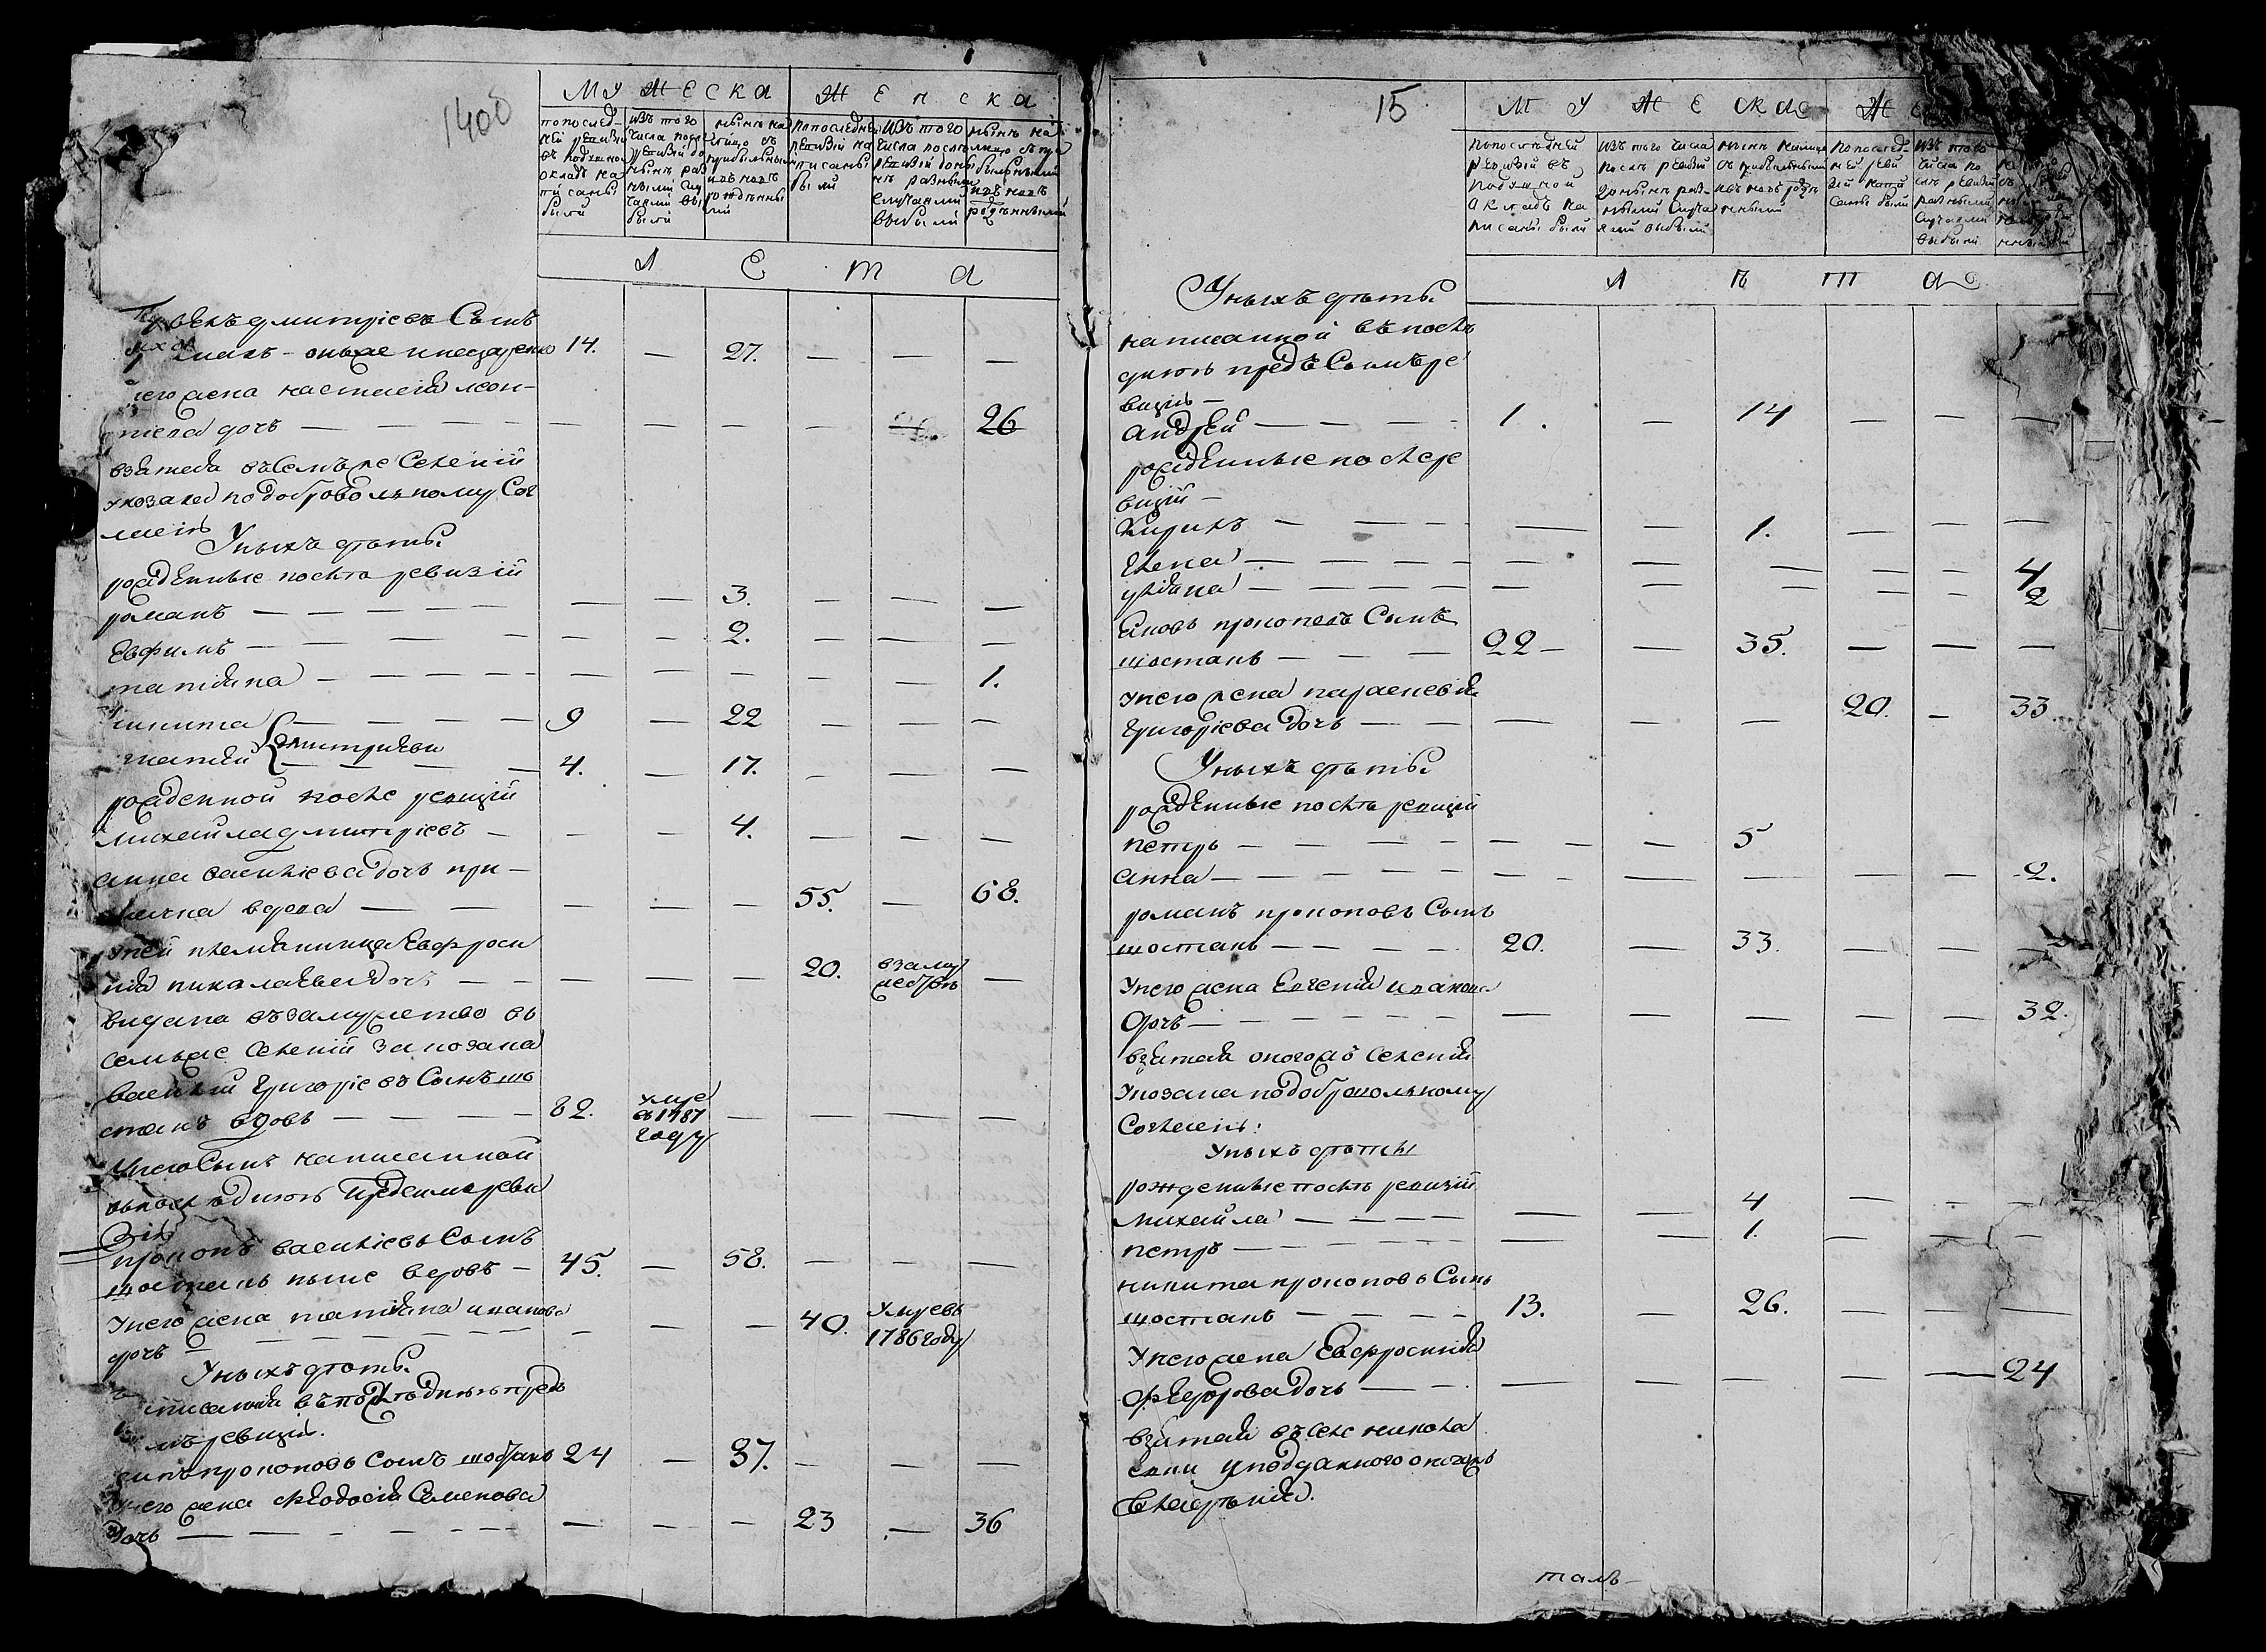 1400
МУЖЕСКА ЖЕНСКА
по последней ревизии въ подушной окладъ написаны были
изъ того числа после ревизии до ныне разными случаями выбыли
ныне на лицо съ прибылыми и вновь рожденными
по последней ревизии написаны были
изъ того числа после ревизии до ныне разными случаями выбыли
ныне на лицо съ прибылыми и вновь рожденными
ЛЕТА
дмитріевъ Сынъ
14. — 27. — — —
у него жена настасия леон-
тиева дочь — — — — — — — — 26
взятая въ Семъ же Селении
указаное по добровольному Сог
ласию
У нихъ дѣти
рожденные послѣ ревизіи
романъ — — — — — — 3. — — —
Евфимъ — — — — — — 2. — — —
татияна — — — — — — — — — — 1.
никита — — — — 9 — 22 — — —
матвей дмитриевы — — — — 4. — 17. — — —
рожденной после ревизіи
михайла дмитріевъ — — — 4. — — —
анна василіева дочь при-
вдова — — — — — 55. — 68.
у ней племянница Евфроси
ния николаевна дочь — — — — — 20. взамужество —
видана въ замужество въ
Семъ же Селеніи за козака
василій григоріевъ Сынъ шо
станъ вдовъ — — — 82. умре въ 1787 году — — — —
у него Сынъ написанной
въ последнюю предъ Симъ реви
зію
прокопъ василіевъ Сынъ
шостанъ ныне вдовъ — 45. — 58. — — —
у него жена татияна иванова
дочь — — — — — — — — — 40. умре въ 1786 году
У нихъ дѣти
написаныя въ последнюю предъ
Симъ ревизию
прокоповъ Сынъ шостанъ 24 — 37. — — —
у него жена феодосия Семенова
дочь — — — — — — — — — 23 — 36
15
МУЖЕСКА
по последней ревизии въ подушной окладъ написаны были
изъ того числа после ревизии до ныне разными случаями выбыли
ныне налицо съ прибылыми и вновь рожденными
по последней ревизии написаны были
изъ того числа после ревизии разными случаями выбыли
ЛѢТА
У нихъ дѣти
написанной въ послѣ
днюю предъ Симъ ре
визию —
андрей — — — — 1. — 14 — — —
рожденные после ре
визіи —
Кирикъ — — — — — 1. — — — —
Елена — — — — — — — — — — 4
улияна — — — — — — — — — 2
Яковъ прокоповъ Сынъ
шостанъ — — — 22 — — 35. — — —
у него жена параскевия
григоріева дочь — — — — — 20. — 33
У нихъ дѣти
рожденные послѣ ревизіи
петръ — — — — — — — 5
анна — — — — — — — — — — — 2.
романъ прокоповъ Сынъ
шостанъ — — — — 20. — 33. — — —
у него жена Евгения иванова
дочь — — — — — — — — — — — 32.
взятая оного жъ Селения
у козака по добровольному
Согласию:
у нихъ дѣти
рожденные послѣ ревизіи
михайла — — — — — — 4 — — —
петръ — — — — — — — 1. — — —
никита прокоповъ Сынъ
шостанъ — — — — 13. — 26. — — —
у него жена Евфросиния
федорова дочь — — — — — — — — 24
взятая въ Селе никола
евки у подданного
там-